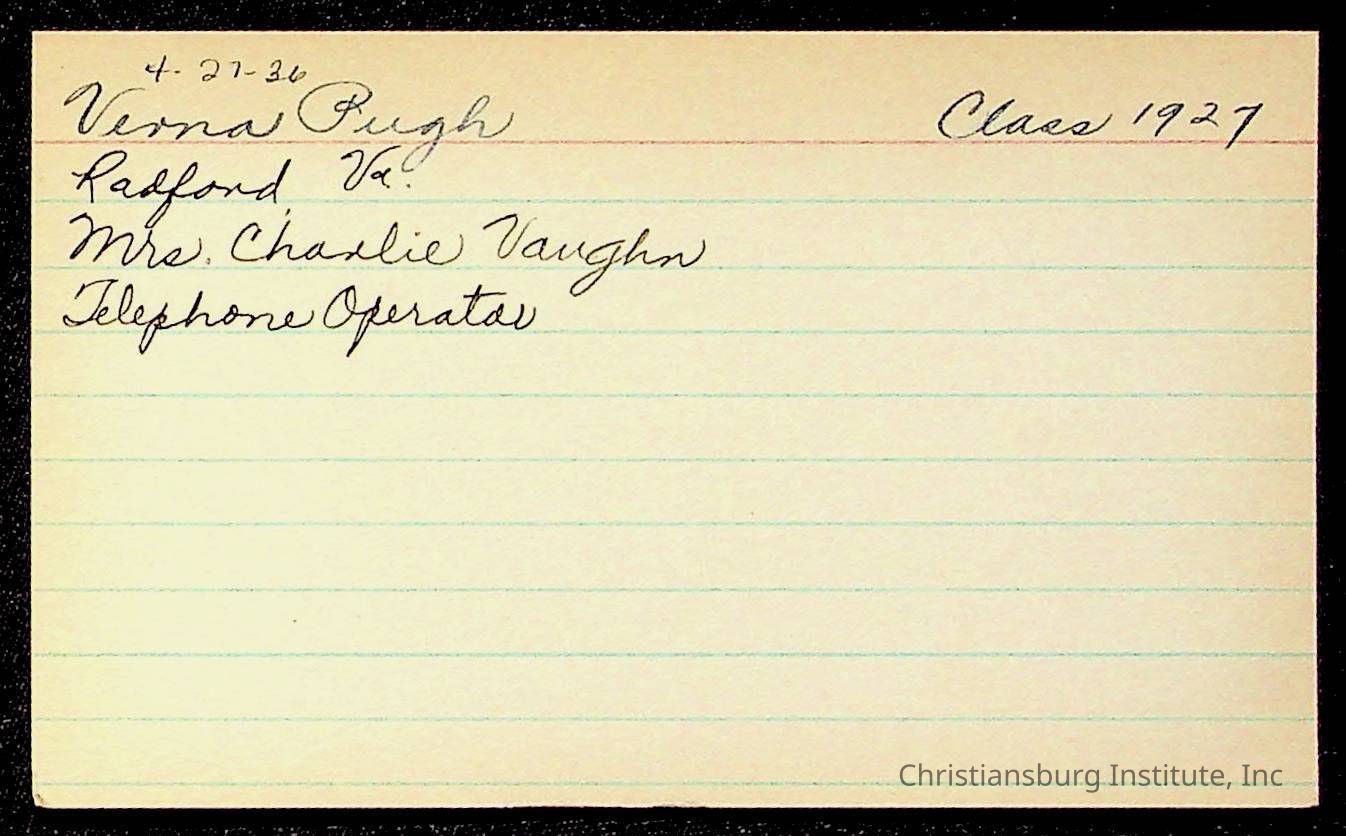 4-27-36
Verna Pugh Class 1927
Radford, Va.
Mrs. Charlie Vaughn
Telephone Operator
Christiansburg Institute, Inc